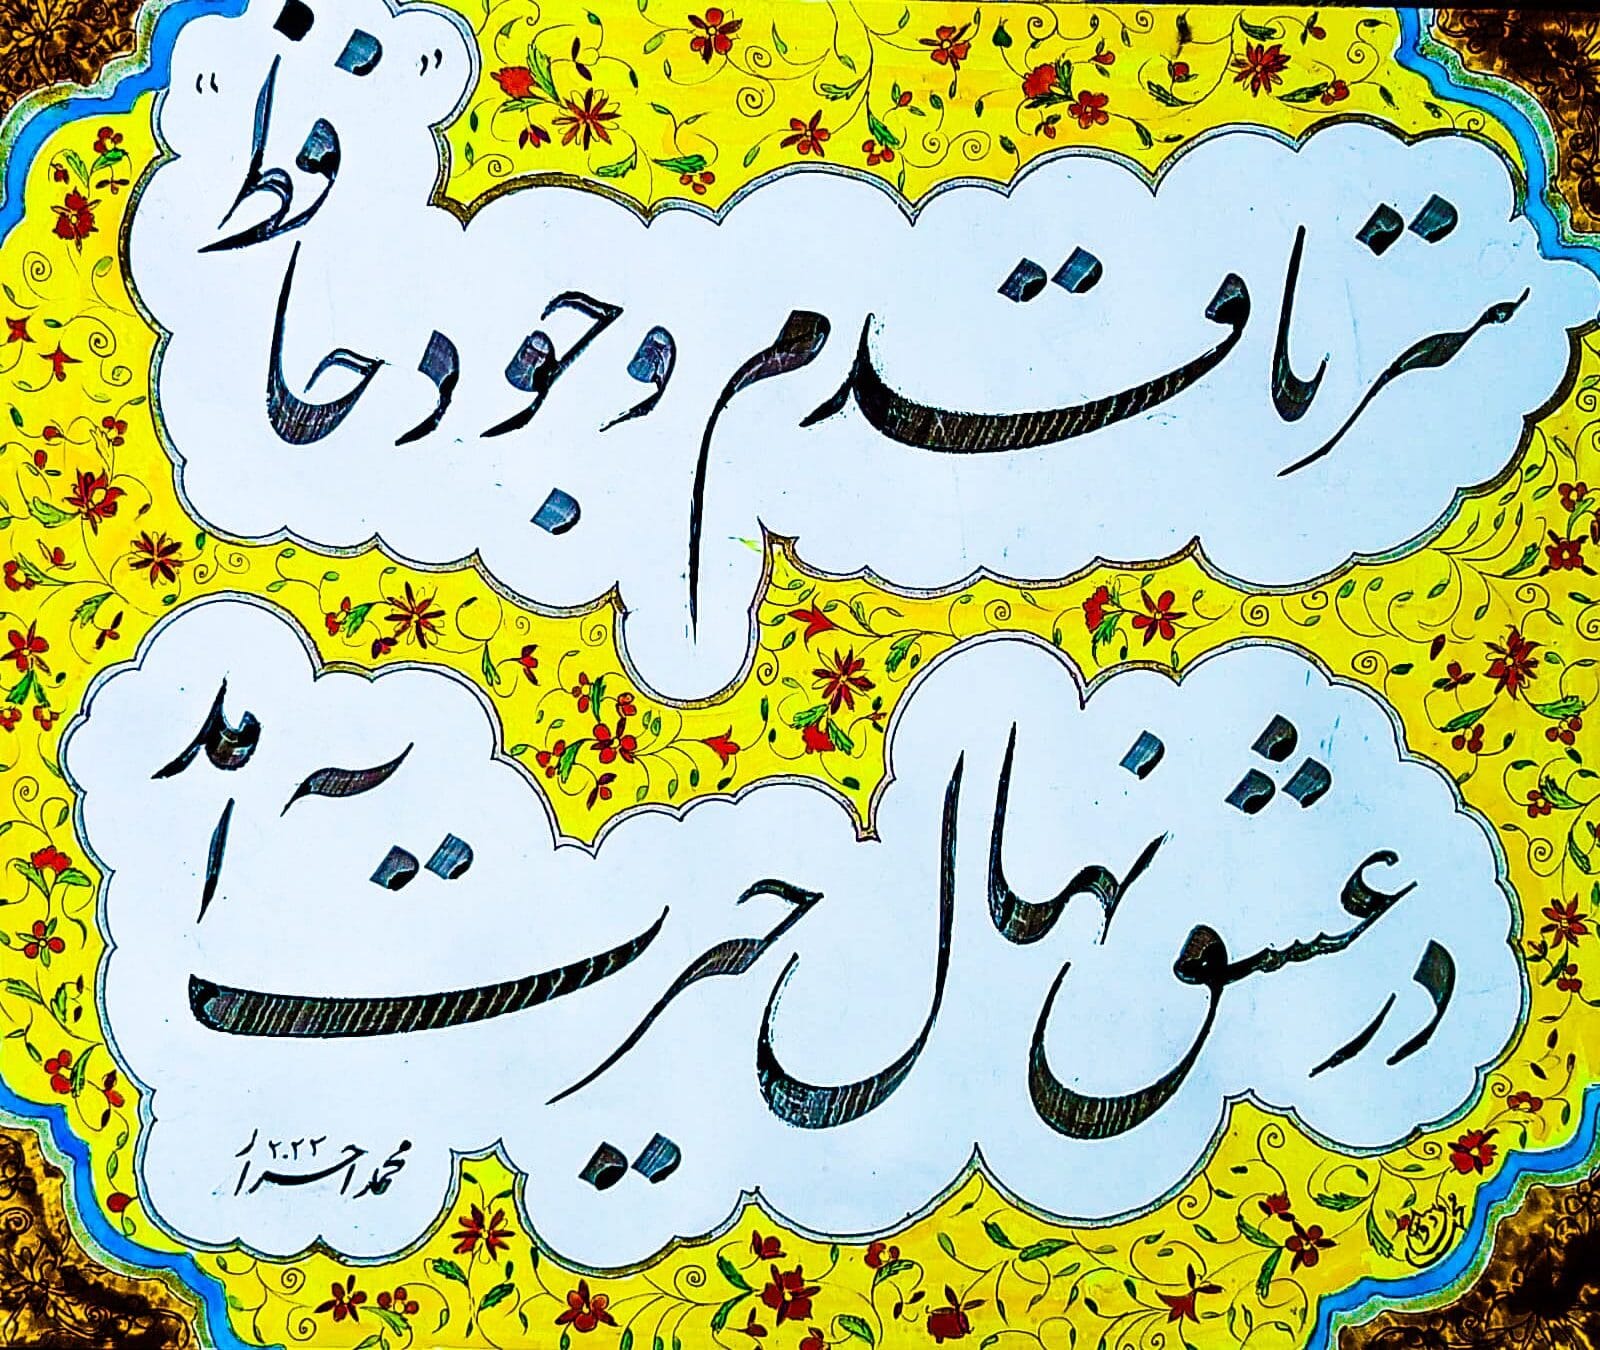 سر تا قدم وجود حافظ
در عشق نهال حیرت آمد
محمد احرار ۲۰۲۲